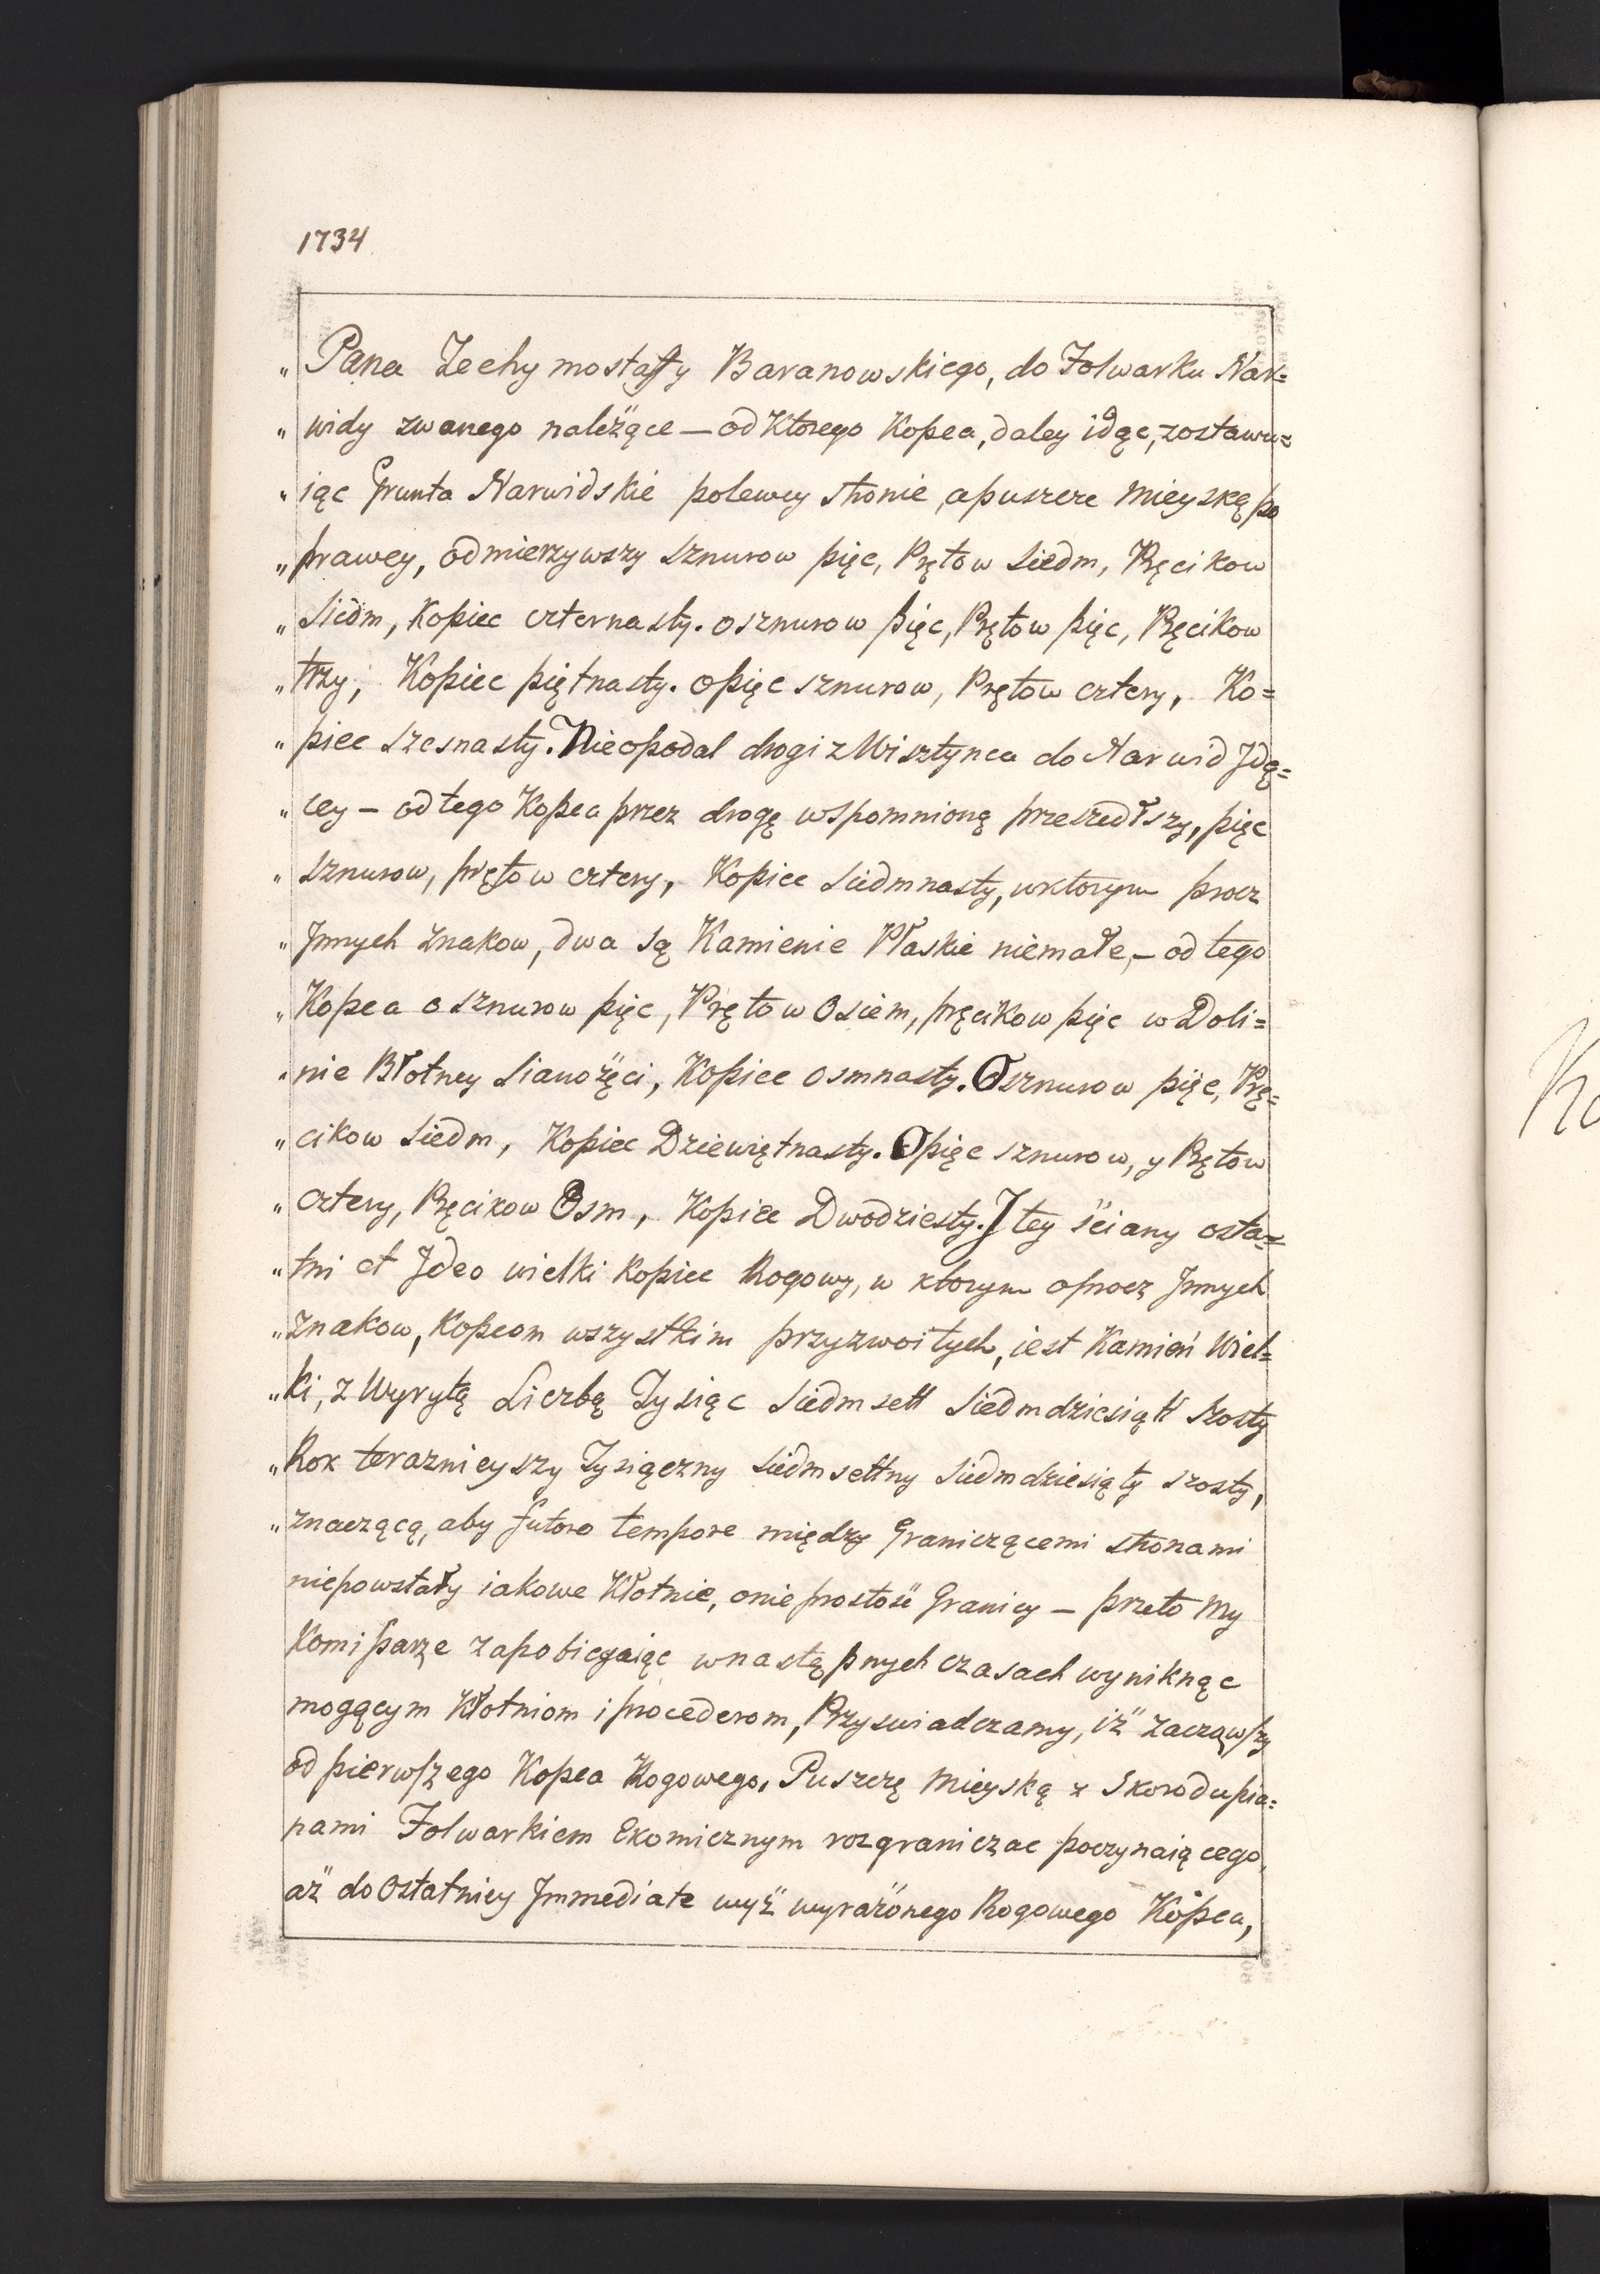 1734
„ Pana Zechymostaſty Baranowskiego, do Folwarku Nar=
„ widy zwanego należące — od Ktorego Kopca, daley idąc, zostawu=
„ iąc Grunta Narwidskie polewey stronie, apuszcze Mieyską po
„ prawey, odmierzywszy Sznurow pięc, Prętow Siedm, Pręcikow
„ Siedm, Kopiec czternasty. o sznurow pięc, Prętow pięc, Pręcikow
„ trzy, Kopiec piętnasty. o pięc sznurow, Prętow cztery, Ko=
„ piec szesnasty. Nieopodal drogi z Wisztynca do Narwid Idą=
„ cey — od tego Kopca przez drogę wspomnioną przeszedłszy, pięc
„ Sznurow, prętow cztery, Kopiec Siedmnasty, wktorym procz
„ Innych znakow, dwa są Kamienie Płaskie niemałe, — od tego
„ Kopca o sznurow pięc, Prętow Osiem, pręcikow pięc w Doli=
„ nie Błotney Sianożęci, Kopiec osmnasty. O sznurow pięc, Prę=
„ cikow Siedm, Kopiec Dziewiętnasty. O pięc sznurow, y Prętow
„ cztery, Pręcikow Osm, Kopiec Dwódziesty. I tey ściany osta=
„ tni et Ideo wielki Kopiec Rogowy, w ktorym oprocz Innych
„ Znakow, Kopcom wszystkim przyzwoitych, jest Kamień Wiel=
„ ki, z Wyrytą Liczbą Tysiąc Siedmsett Siedmdziesiątt szosty
„ Rok teraznieyszy Tysiączny Siedmsettny Siedmdziesiąty szosty,
„ znaczącą, aby futoro tempore między Graniczącemi stronami
niepowstały iakowe Kłotnie, onieprostość Granicy — przeto My
Komißarze zapobiegaiąc wnastępnych czasach wyniknąc
mogącym Kłotniom i procederom, Przyswiadczamy, iż zacząwſzy
od pierwſzego Kopca Rogowego, Puszczę Mieyską z Skorodupia=
nami Folwarkiem Ekomicznym rozgraniczac poczynaiącego,
aż do Ostatniey Immediate wyż wyrażonego Rogowego Kopca,